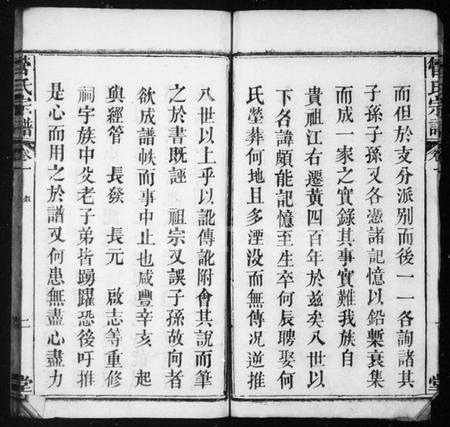 而但於支分派別而後一一各詢諸其
子孫子孫又各憑諸記憶以鉛槧裒集
而成一家之實錄其事實難我族自
貴祖江右遷黃四百年於茲矣八世以
下各諱頗能記憶至生卒何辰聘娶何
氏塋葬何地且多湮没而無傳况逆推
八世以上乎以訛傳訛附會其說而筆
之於書既誣 祖宗又誤子孫故向者
欲成譜帙而事中止也咸豐辛亥 起
與經管 長發 長元 啟志等重修
祠宇族中父老子弟皆踴躍恐後吁推
是心而用之於譜又何患無盡心盡力
管氏宗譜
卷一
管氏宗譜